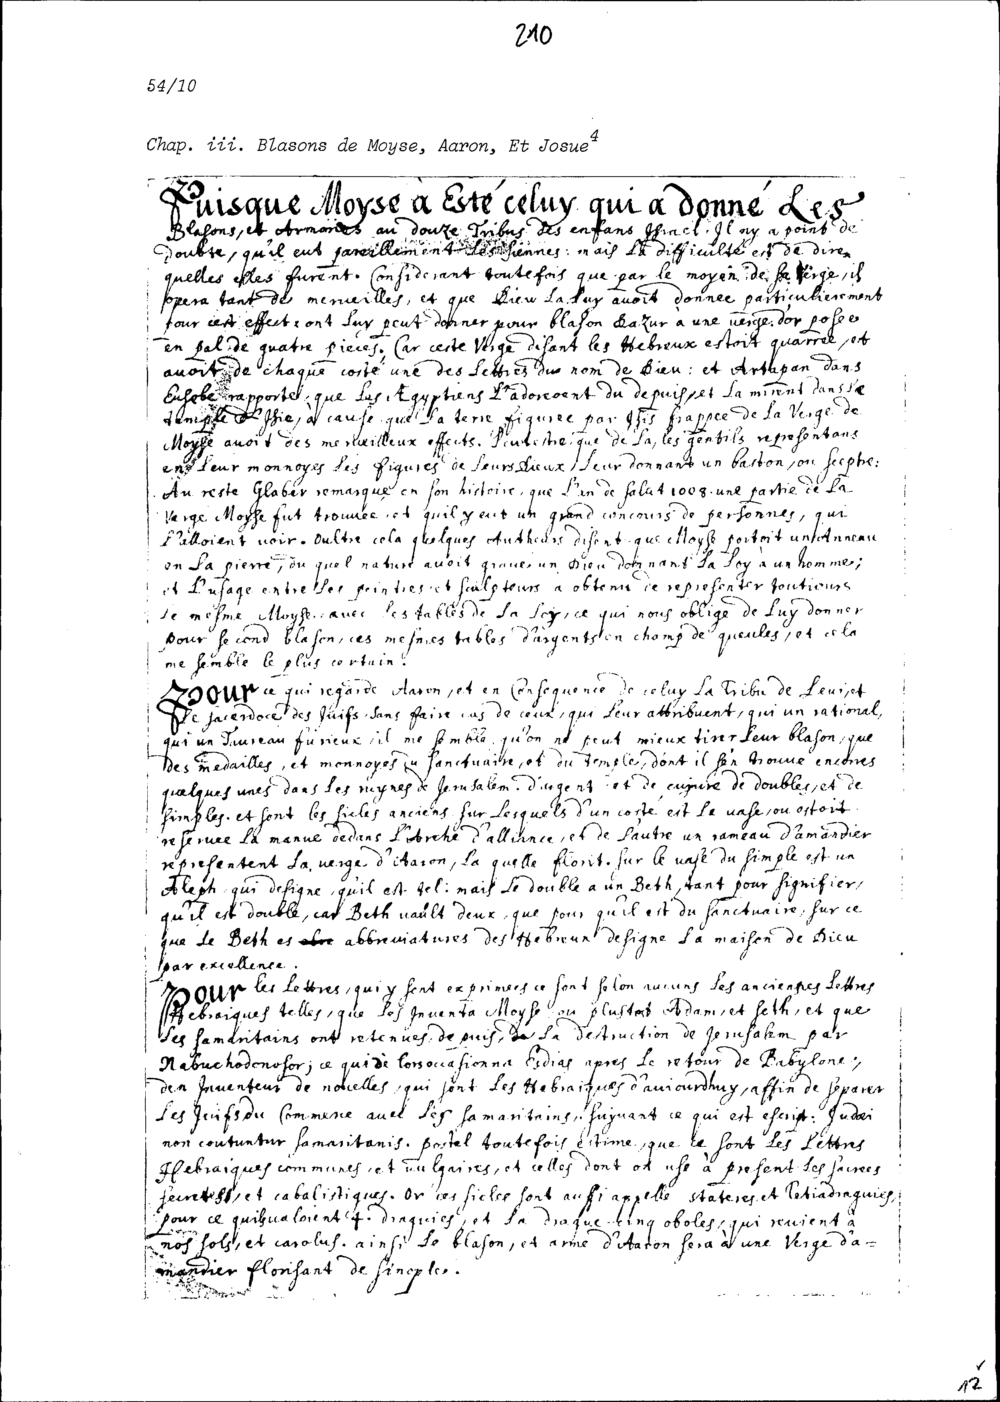 210
54/10
Chap. iii. Blasons de Moyse, Aaron, Et Josue4
Puisque Moyse à Esté celuy qui a donné Les
Blasons, et Armoiries au douze Tribus des enfans Israel. Il ny a point de
doubte, qu'il eut pareillement les siennes: mais la difficulté est de dire
quelles elles furent. Considerant toutefois que par le moyen de sa verge, il
opera tant de merveilles, et que Dieu la luy avoit donnee particulierement
pour cest effect: ont luy peut donner pour blason d'azur à une verge d'or posee
en pal de quatre pieces. Car ceste verge disant les Hebreux estoit quarree, et
avoit de chaque costé une des lettres du nom de Dieu: et Artapan dans
Eusebe rapporte, que les Ægyptiens l'adoroent du depuis, et la mirent dans le
temple d'Isie, à cause que la terre figuree par Isis frappee de la Verge de
Moyse avoit des merveilleux effects. Peut estre que de là, les gentils representans
en leur monnoyes les figures de leurs Dieux, leur donnant un baston, ou sceptre:
Au reste Glaber remarque en son histoire, que l'an de salut 1008. une partie de la
verge Moyse fut trouuee, et quil y eut un grand concours de personnes, qui
l'alloient voir. Oultre cela quelques Autheurs disent que Moyse portoit un Anneau
en la pierre, du quel nature avoit graué un Dieu donnant la loy à un homme;
et l'usage entre les peintres et sculpteurs a obtenu de representer toutiours
le mesme Moyse avec les tables de la loy, ce qui nous oblige de luy donner
pour second blason, ces mesmes tables d'argent en champ de gueules, et cela
me semble le plus certain.
Pour ce qui regarde Aaron, et en Consequence de celuy la Tribu de Leui, et
le sacerdoce des Juifs, sans faire cas de ceux, qui leur attribuent, qui un rational,
qui un Taureau furieux, il me semble qu'on ne peut mieux tirer leur blason, que
des medailles, et monnoyes du sanctuaire, et du temple, dont il s'en trouue encores
quelques unes dans les ruynes de Jerusalem d'argent et de cuivre de doubles, et de
simples. et sont les sicles anciens sur lesquels d'un costé est le vase, ou estoit
reseruee la manne dedans l'Arche d'alliance, et de l'autre un rameau d'amandier
representent la verge d'Aaron, la quelle florit. sur le vase du simple est un
Aleph qui designe qu'il est tel: mais le double a un Beth, tant pour signifier,
qu'il est double, car Beth uault deux, que pour qu'il est du sanctuaire, sur ce
que le Beth es abre abbreviatures des Hebreux designe la maison de Dieu
par excellence.
Pour les lettres, qui y sont exprimees ce sont selon aucuns les anciennes lettres
Hebraiques telles, que les Inventa Moyse ou plustost Adam, et Seth, et que
les samaritains ont retenues depuis, de la destruction de Jerusalem par
Nabuchodonosor; ce qui occasionna Esdras apres le retour de Babylone,
den Inventeur de nouelles, qui sont les Hebraiques d'auiourdhuy, affin de separer
les Juifs du Commerce avec les samaritains, suyuant ce qui est escript: Judæi
non coutuntur samaritanis. postel toutefois estime, que ce sont les lettres
Hebraiques communes, et vulgaires, et celles dont on use à present les sacrees
secretes, et cabalistiques. Or ces sicles sont aussi appellé stateres et Tetradragmes,
pour ce quils ualoient 4. dragmes, et la dragme cinq oboles, qui reuient à
nos sols, et carolus. ainsi le blason, et arme d'Aaron sera à une Verge d'a=
mandier florissant de sinople.
12